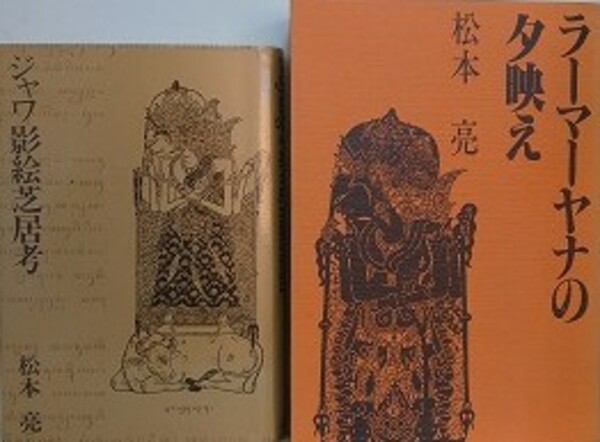 ジャワ影絵芝居考
松本 亮
ラーマーヤナの
夕映え
松本 亮